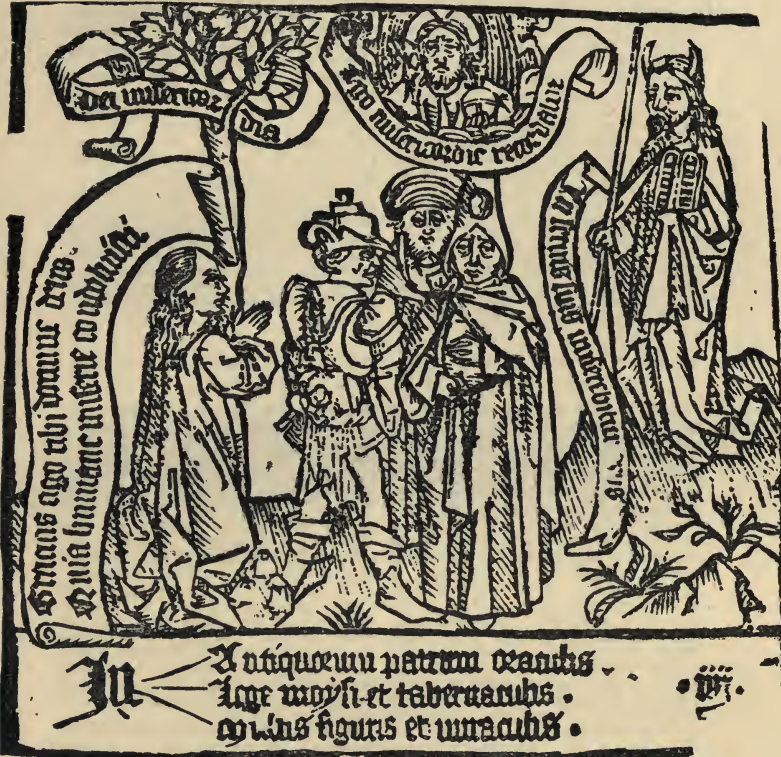 Dei misericor
dia
Ego misericordie recordabor
Gracias ago tibi domine deus
Quia humane miserie condoluisti
In seruis suis miserebitur
In
Antiquorum patrum oraculis.
Lege moysi et tabernaculis.
figuris et miraculis.